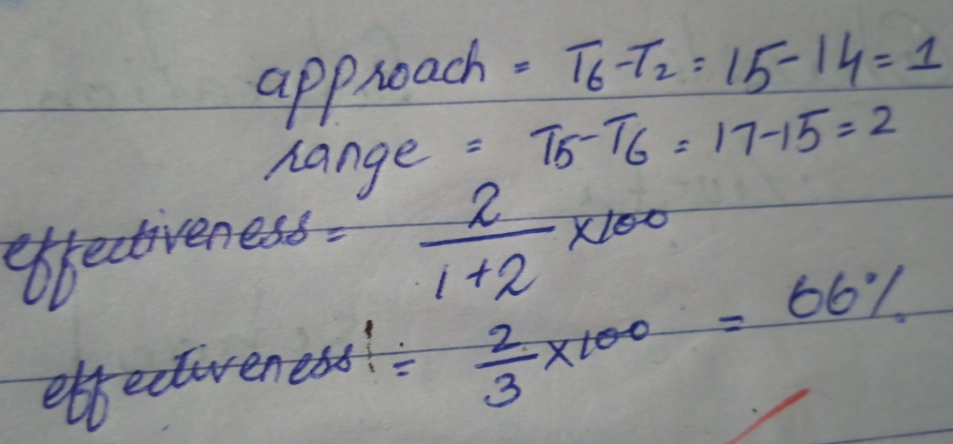 approach = T6-T2 = 15-14 = 1
range = T5-T6 = 17-15 = 2
effectiveness = 2/1+2 ×100
effectiveness = 2/3 ×100 = 66%